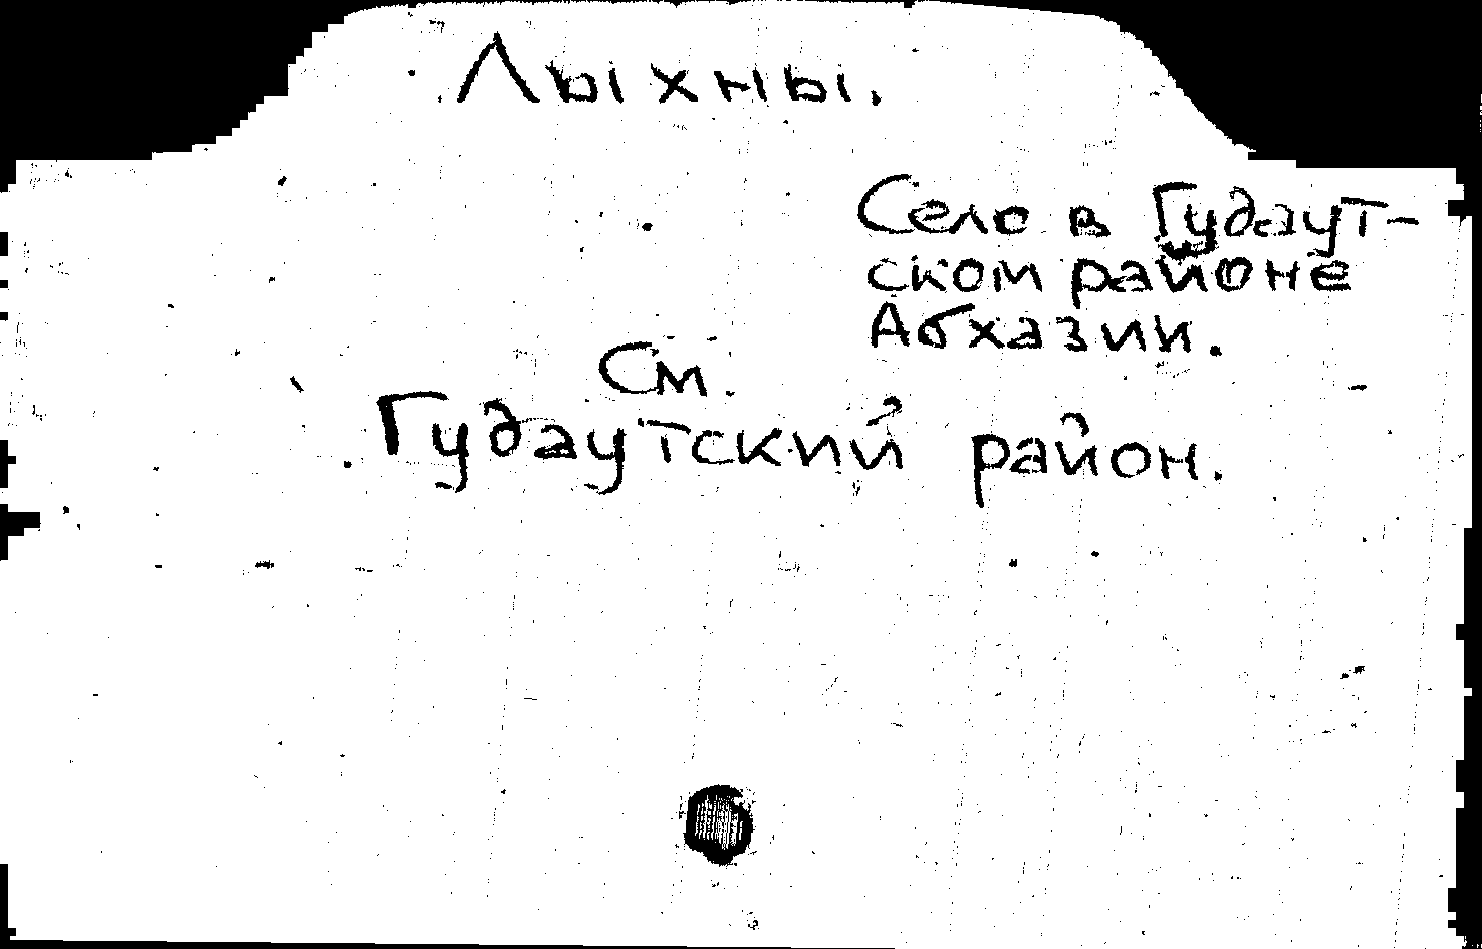 Лыхны.
Село в Гудаут-
ском районе
Абхазии.
См.
Гудаутский район.